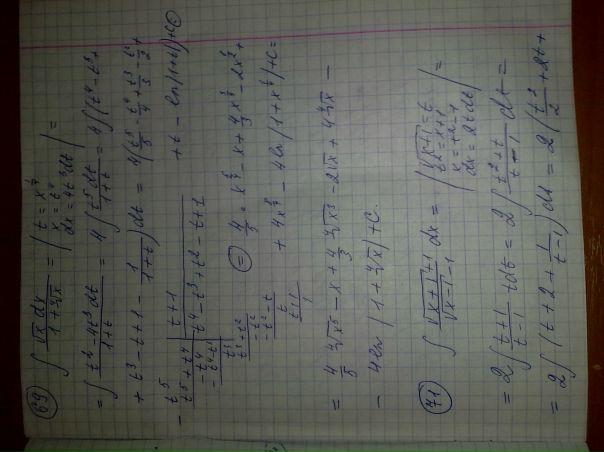 69) ∫ √x dx / (1 + ⁴√x) = | t = x^¼ x = t⁴ dx = 4t³dt | =
= ∫ t² · 4t³dt / (1+t) = 4 ∫ t⁵dt / (1+t) = 4 ∫ (t⁴ - t³ +
+ t² - t + 1 - 1/(1+t)) dt = 4 (t⁵/5 - t⁴/4 + t³/3 - t²/2 +
+ t - ln|1+t|) + C =
t⁵ | t+1
t⁵ + t⁴ | t⁴ - t³ + t² - t + 1
- t⁴
- t⁴ - t³
t³
t³ + t²
- t²
- t² - t
t
t+1
= 4/5 · x^(5/4) - x + 4/3 x^(3/4) - 2x^(2/4) +
+ 4x^(1/4) - 4ln|1 + x^(1/4)| + C =
= 4/5 ⁴√x⁵ - x + 4/3 ⁴√x³ - 2√x + 4⁴√x -
- 4ln|1 + ⁴√x| + C.
71) ∫ (√(x+1) + 1) / (√(x+1) - 1) dx = | √(x+1) = t t² = x+1 x = t² - 1 dx = 2t dt | =
= 2 ∫ (t+1)/(t-1) · t dt = 2 ∫ (t² + t)/(t-1) dt =
= 2 ∫ (t + 2 + 2/(t-1)) dt = 2 (t²/2 + 2t +